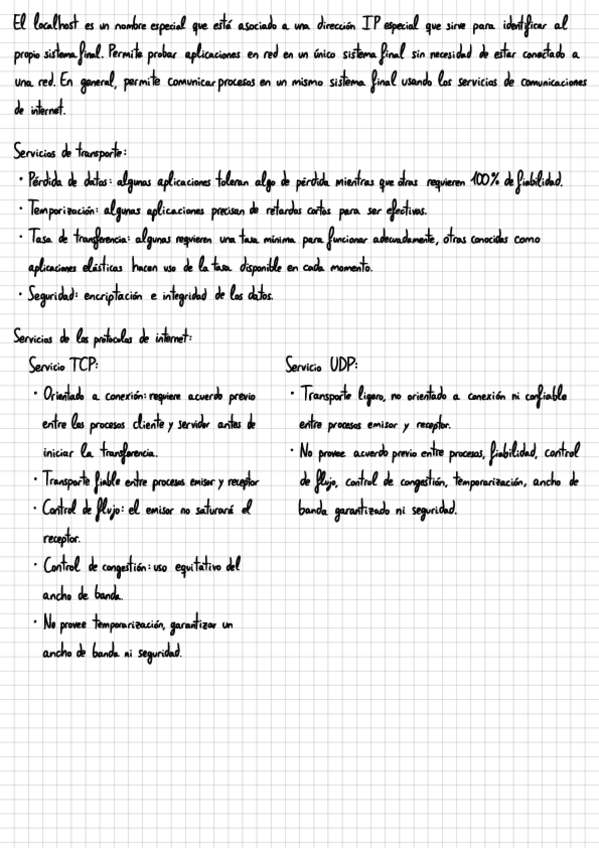 El localhost es un nombre especial que está asociado a una dirección IP especial que sirve para identificar al
propio sistema final. Permite probar aplicaciones en red en un único sistema final sin necesidad de estar conectado a
una red. En general, permite comunicar procesos en un mismo sistema final usando los servicios de comunicaciones
de internet.
Servicios de transporte:
· Pérdida de datos: algunas aplicaciones toleran algo de pérdida mientras que otras requieren 100% de fiabilidad.
· Temporización: algunas aplicaciones precisan de retardos cortos para ser efectivas.
· Tasa de transferencia: algunas requieren una tasa mínima para funcionar adecuadamente, otras conocidas como
aplicaciones elásticas hacen uso de la tasa disponible en cada momento.
· Seguridad: encriptación e integridad de los datos.
Servicios de los protocolos de internet:
Servicio TCP:
· Orientado a conexión: requiere acuerdo previo
entre los procesos cliente y servidor antes de
iniciar la transferencia.
· Transporte fiable entre procesos emisor y receptor
· Control de flujo: el emisor no saturará el
receptor.
· Control de congestión: uso equitativo del
ancho de banda.
· No provee temporarización, garantizar un
ancho de banda ni seguridad.
Servicio UDP:
· Transporte ligero, no orientado a conexión ni confiable
entre procesos emisor y receptor.
· No provee acuerdo previo entre procesos, fiabilidad, control
de flujo, control de congestión, temporarización, ancho de
banda garantizado ni seguridad.